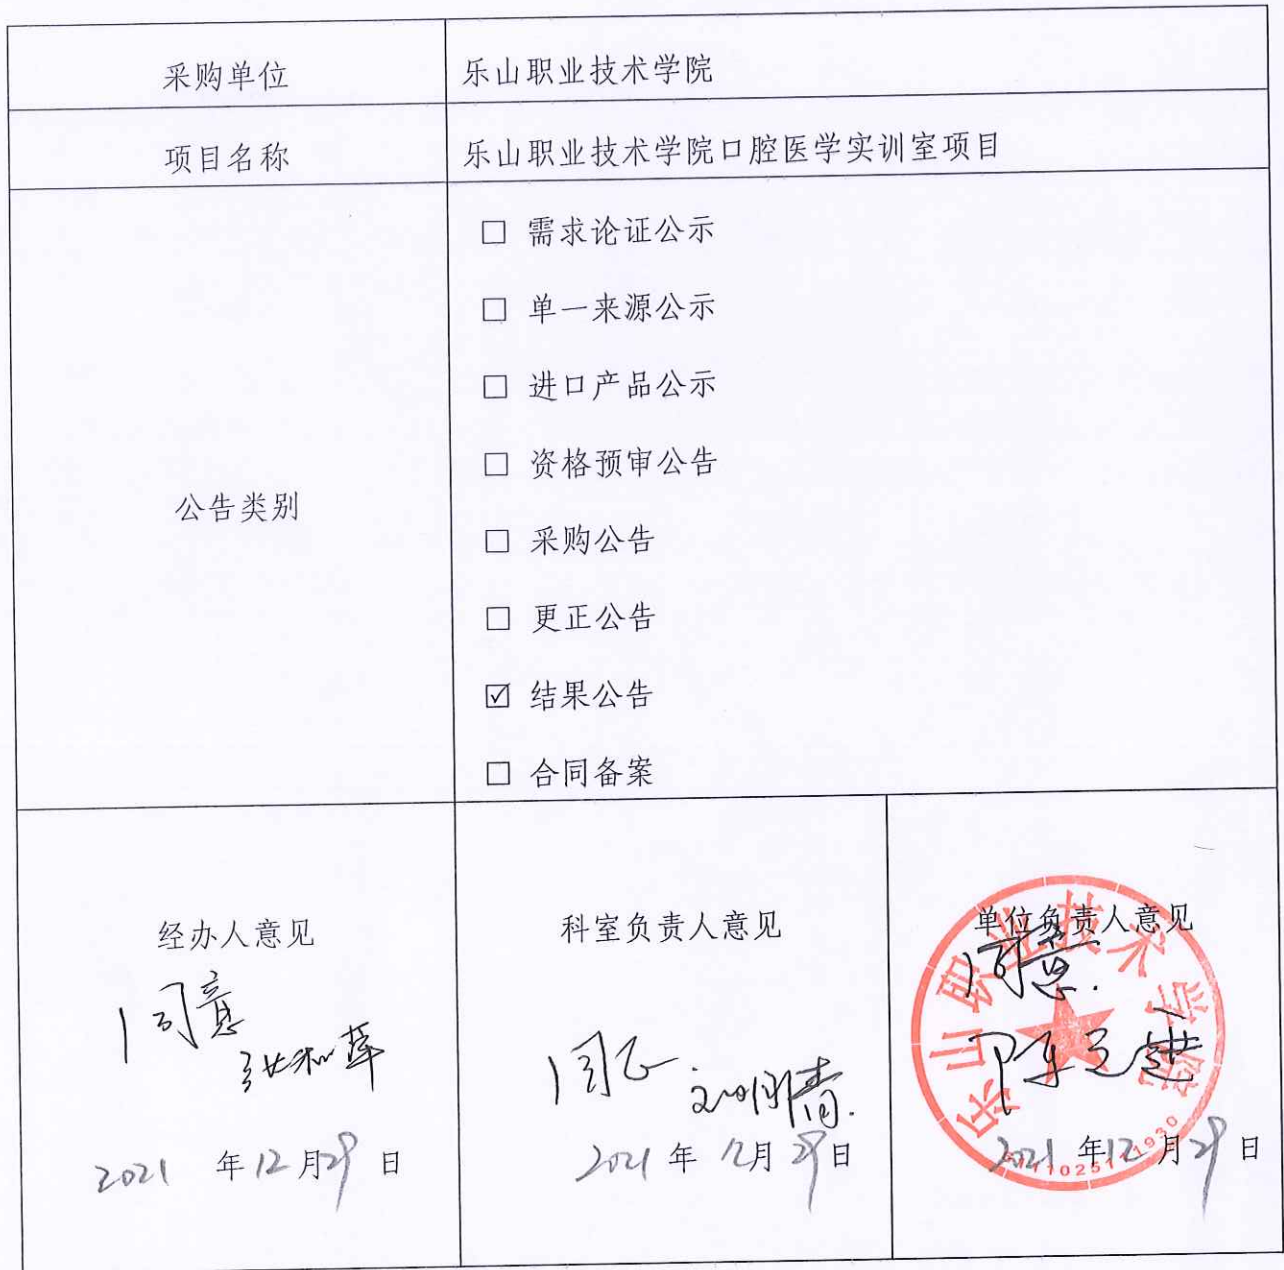 采购单位 乐山职业技术学院
项目名称 乐山职业技术学院口腔医学实训室项目
公告类别
☐ 需求论证公示
☐ 单一来源公示
☐ 进口产品公示
☐ 资格预审公告
☐ 采购公告
☐ 更正公告
☑ 结果公告
☐ 合同备案
经办人意见
同意
2021 年12月29日
科室负责人意见
同意
2021 年 12月29日
单位负责人意见
同意.
2021 年12月29日
乐山职业技术学院